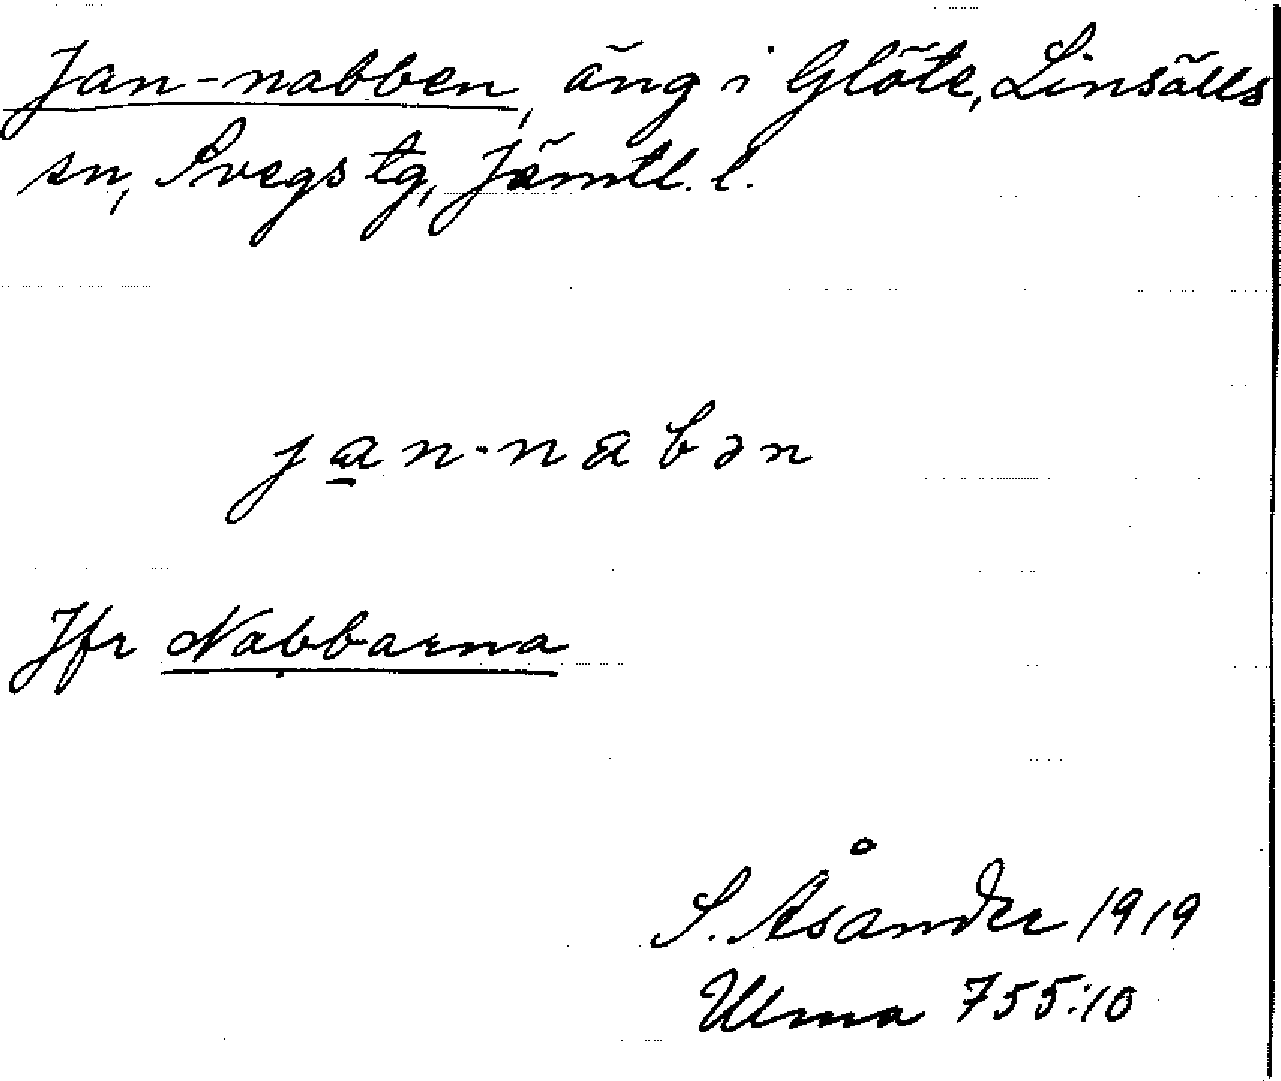 Jan-nabben, äng i Glöte, Linsälls
sn, Svegs tg, Jämtl. l.
jan-nabən
Jfr Nabbarna
S. Åsander 1919
Ulma 755:10